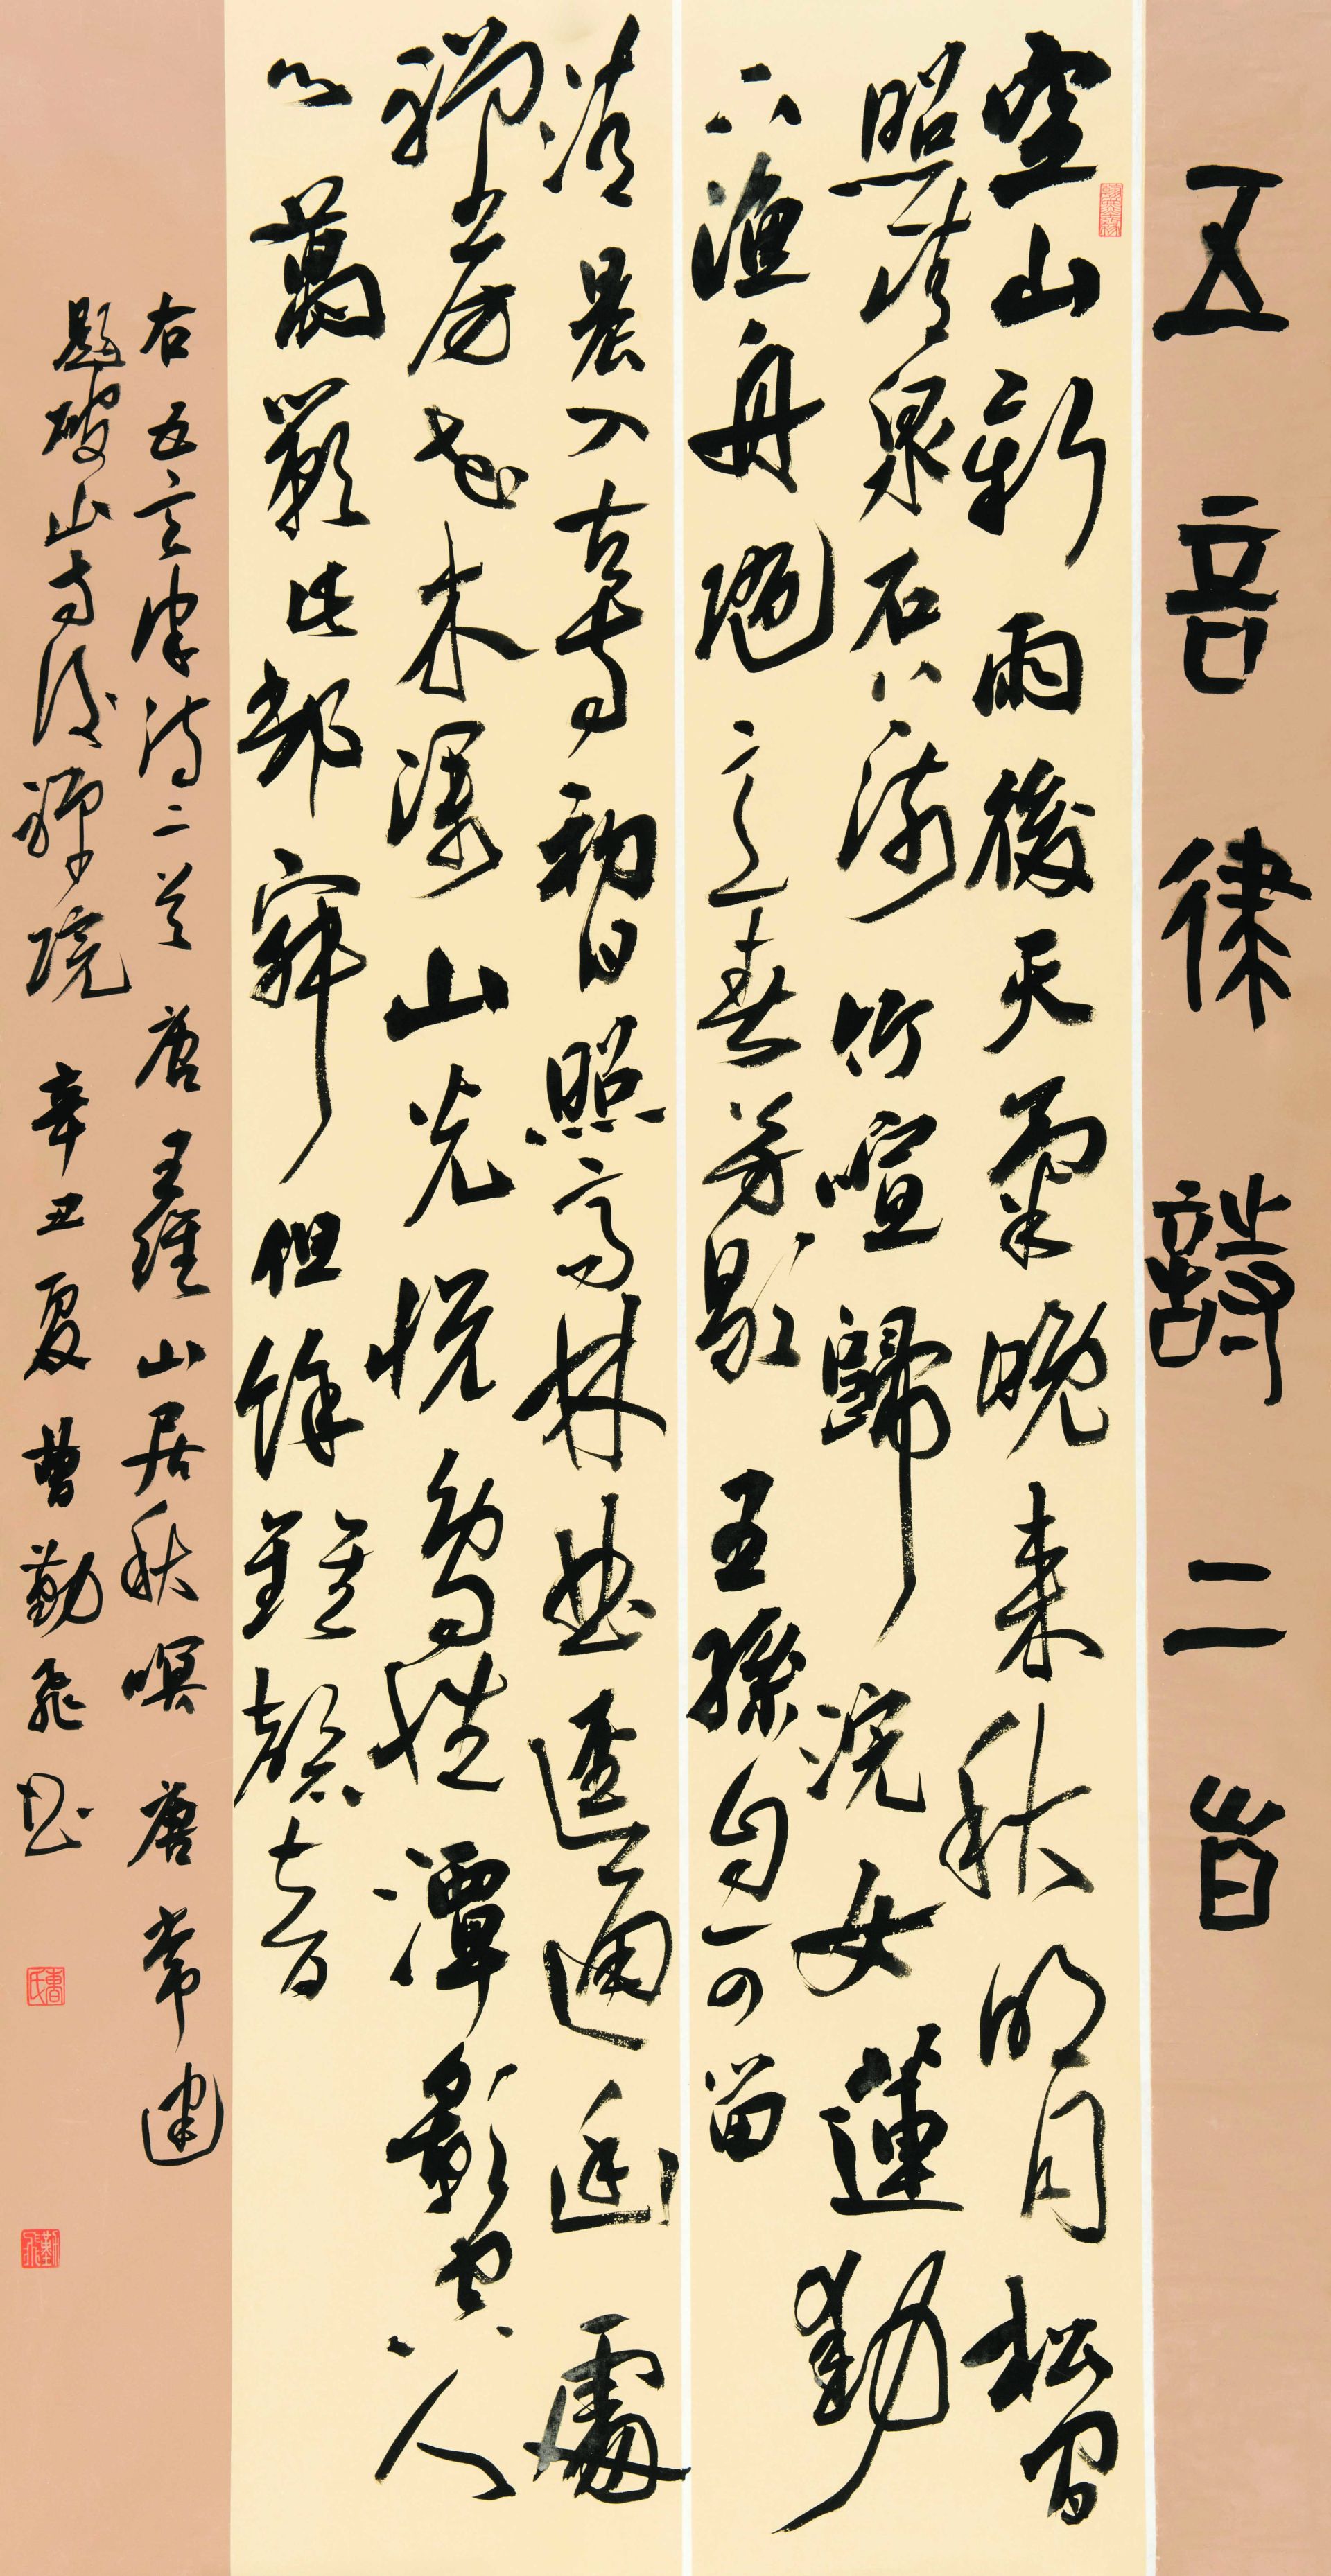 五言律詩二首
空山新雨後天氣晚來秋明月松間
照清泉石上流竹喧歸浣女蓮動
下漁舟隨意春芳歇王孫自可留
清晨入古寺初日照高林曲逕通幽處
禪房花木深山光悅鳥性潭影空人
心萬籟此都寂但餘鐘磬音
右五言律詩二首 唐 王維 山居秋暝 唐 常建
題破山寺後禪院 辛丑夏 曹勤飛書
曹氏
勤飛